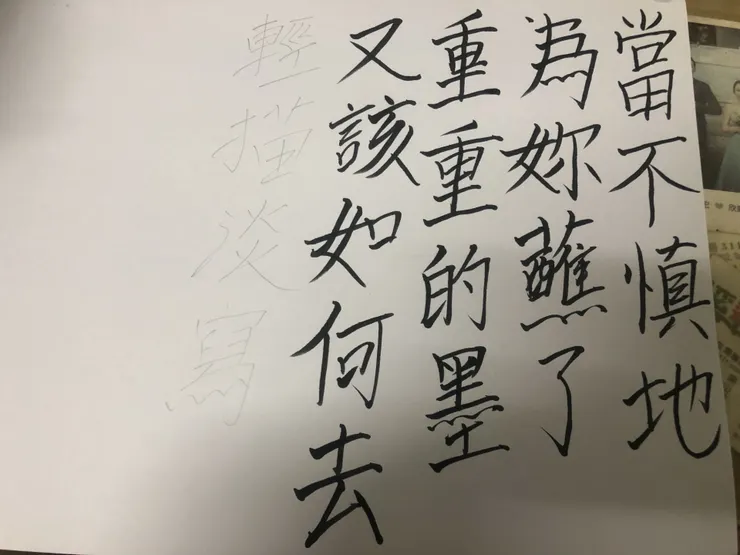 當不慎地
為妳蘸了
重重的墨
又該如何去
輕描淡寫